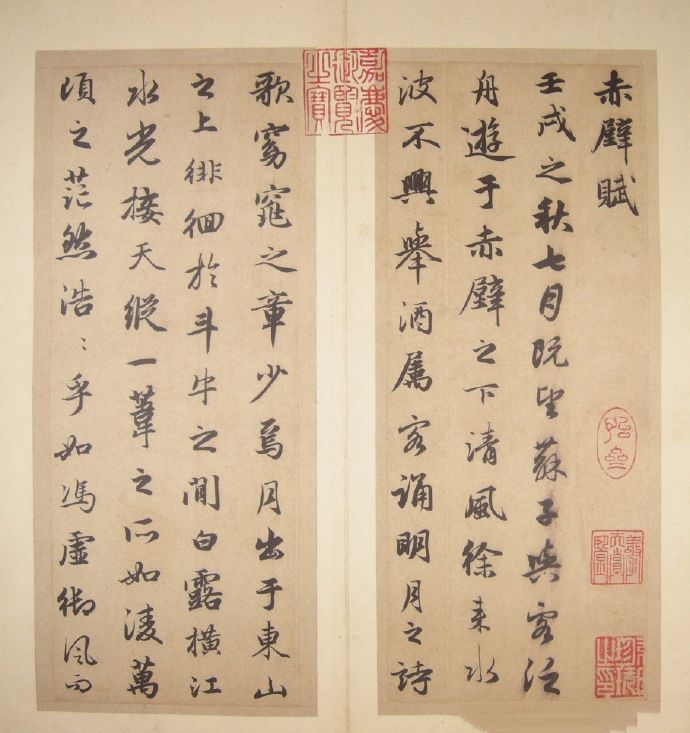 赤壁賦
壬戌之秋七月既望蘇子與客泛
舟遊于赤壁之下清風徐來水
波不興舉酒属客誦明月之詩
嘉慶御覽之寶
歌窈窕之章少焉月出于東山
之上徘徊於斗牛之間白露橫江
水光接天縱一葦之所如淩萬
頃之茫然浩〻乎如馮虛御風而